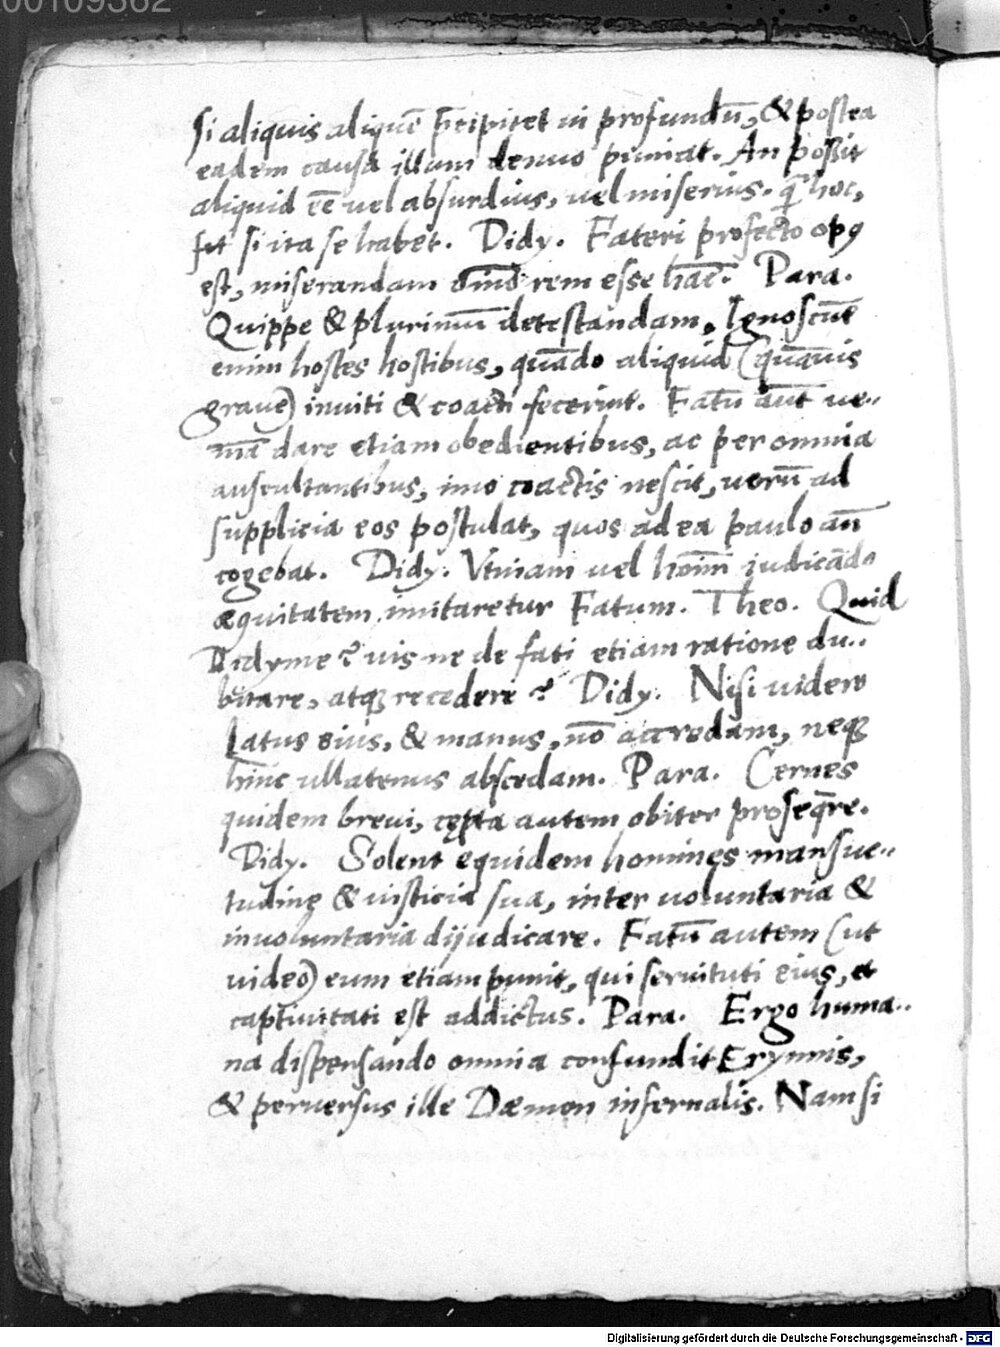 00109362
si aliquis aliquē p̄cipitet in profundū, & postea
eadem causa illum denuo puniat. An possit
aliquid eē vel absurdius, vel miserius. q̄ hoc,
fit si ita se habet. Didy. Fateri profecto opꝰ
est, miserandam oīno rem esse hāc. Para.
Quippe & plurimū detestandam. Ignoscūt
enim hostes hostibus, quādo aliquid (quāuis
graue) inuiti & coacti fecerint. Fatū aūt ue-
niā dare etiam obedientibus, ac per omnia
auscultantibus, imo coactis nescit, verū ad
supplicia eos postulat, quos ad ea paulo añ
cogebat. Didy. Vtinam vel hoīm judicādo
æquitatem imitaretur Fatum. Theo. Quid
Didyme? vis ne de fati etiam ratione du-
bitare, atqꝫ recedere? Didy. Nisi videro
Latus eius, & manus, nō accredam, neqꝫ
hinc ullatenus abscedam. Para. Cernes
quidem brevi, cępta autem obiter proseq̄re.
Didy. Solent equidem homines mansue-
tudine & iusticia sua, inter voluntaria &
involuntaria dijudicare. Fatū autem (ut
video) eum etiam punit, qui servituti eius, et
captivitati est addictus. Para. Ergo huma-
na dispensando omnia confundit Erynnis,
& perversus ille Dæmon infernalis. Nam si
Digitalisierung gefördert durch die Deutsche Forschungsgemeinschaft - DFG